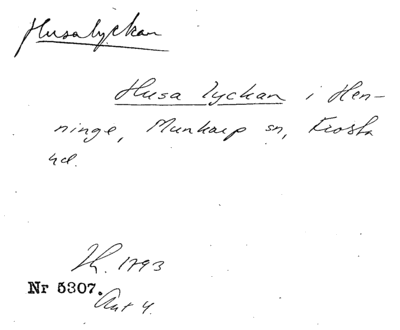 Husalyckan
Husa lyckan i Hen-
ninge, Munkarp sn, Frosta
hd.
Th. 1793
Nr 5307.
Akt 4.